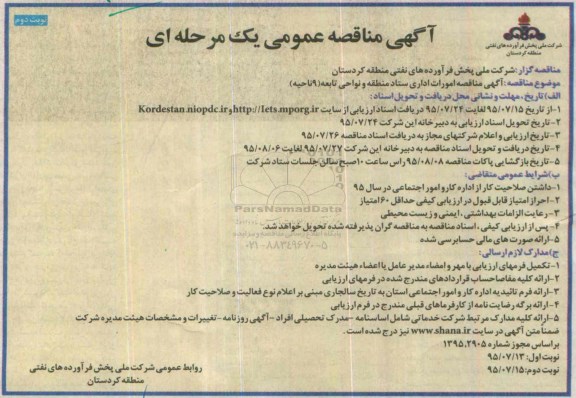 نوبت دوم
شرکت ملی پخش فرآورده های نفتی
منطقه کردستان
آگهی مناقصه عمومی یک مرحله ای
مناقصه گزار: شرکت ملی پخش فرآورده های نفتی منطقه کردستان
موضوع مناقصه: آگهی مناقصه امورات اداری ستاد منطقه و نواحی تابعه (۹ناحیه)
الف) تاریخ، مهلت و نشانی محل دریافت و تحویل اسناد:
۱-از تاریخ ۹۵/۰۷/۱۵ لغایت ۹۵/۰۷/۲۴ دریافت اسناد ارزیابی از سایت http://Iets.mporg.ir و Kordestan.niopdc.ir
۲-تاریخ تحویل اسناد ارزیابی به دبیرخانه این شرکت ۹۵/۰۷/۲۴
۳-تاریخ ارزیابی و اعلام شرکتهای مجاز به دریافت اسناد مناقصه ۹۵/۰۷/۲۶
۴-تاریخ دریافت و تحویل اسناد مناقصه به دبیرخانه این شرکت ۹۵/۰۷/۲۷ لغایت ۹۵/۰۸/۰۶
۵-تاریخ بازگشایی پاکات مناقصه ۹۵/۰۸/۰۸ راس ساعت ۱۰صبح سالن جلسات ستاد شرکت
ب) شرایط عمومی متقاضی:
۱-داشتن صلاحیت کار از اداره کار و امور اجتماعی در سال ۹۵
۲-احراز امتیاز قابل قبول در ارزیابی کیفی حداقل ۶۰امتیاز
۳-رعایت الزامات بهداشتی، ایمنی و زیست محیطی
۴- پس از ارزیابی کیفی، اسناد مناقصه به مناقصه گران پذیرفته شده تحویل خواهد شد.
۵-ارائه صورت های مالی حسابرسی شده
ج) مدارک لازم ارسالی:
۱-تکمیل فرمهای ارزیابی با مهر و امضاء مدیر عامل یا اعضاء هیئت مدیره
۲-ارائه کلیه مفاصاحساب قراردادهای مندرج شده در فرمهای ارزیابی
۳-ارائه فرم تائیدیه اداره کار و امور اجتماعی استان به تاریخ سالجاری مبنی بر اعلام نوع فعالیت و صلاحیت کار
۴-ارائه برگه رضایت نامه از کارفرماهای قبلی مندرج در فرم ارزیابی
۵-ارائه کلیه مدارک مرتبط شرکت خدماتی شامل اساسنامه -مدرک تحصیلی افراد -آگهی روزنامه -تغییرات و مشخصات هیئت مدیره شرکت
ضمنا متن آگهی در سایت www.shana.ir نیز درج شده است.
براساس مجوز شماره ۱۳۹۵.۲۹۰۵
نوبت اول: ۹۵/۰۷/۱۳
نوبت دوم: ۹۵/۰۷/۱۵
روابط عمومی شرکت ملی پخش فرآورده های نفتی
منطقه کردستان
ParsNamadData
۰۲۱-۸۸۳۴۹۶۷۰-۵